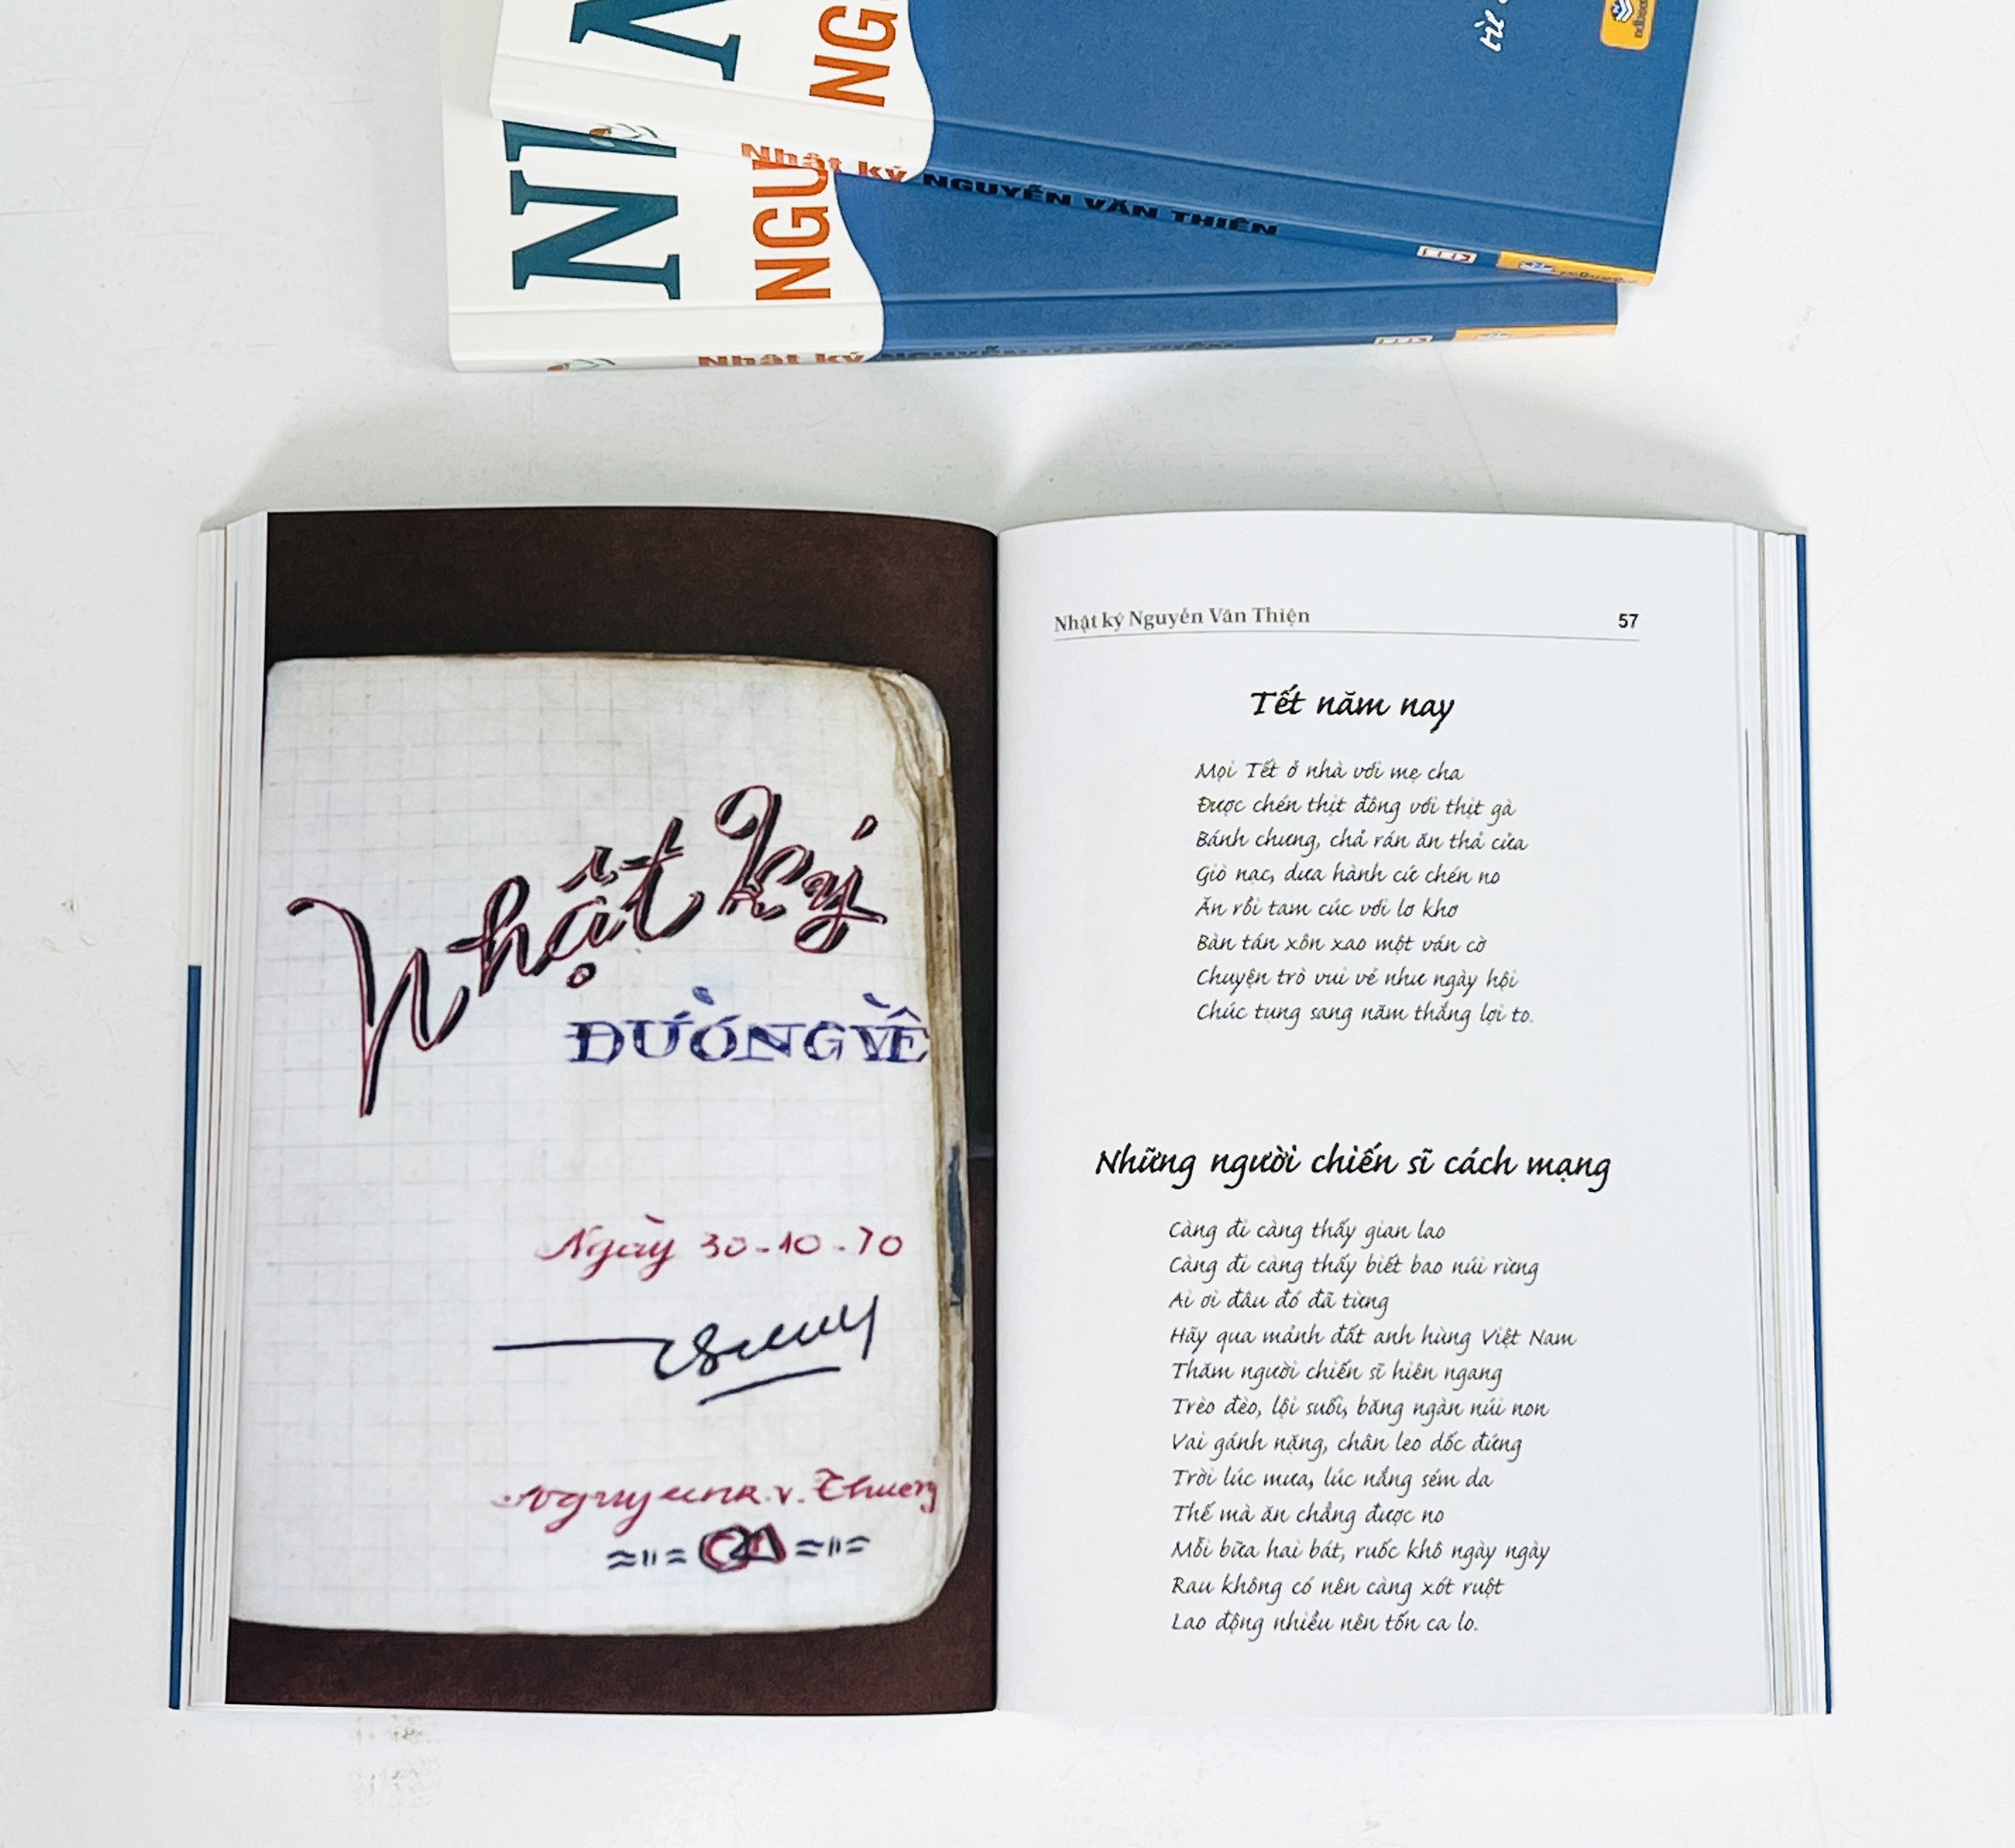 NH
NGU
Nhật ký NGUYỄN VĂN THIỆN
NGU
Nhật ký NGUYỄN VĂN THIỆN
Nhật ký
ĐƯỜNG VỀ
Ngày 30-10-70
Nhật ký Nguyễn Văn Thiện 57
Tết năm nay
Mọi Tết ở nhà với mẹ cha
Được chén thịt đông với thịt gà
Bánh chưng, chả rán ăn thả cửa
Giò nạc, dưa hành cứ chén no
Ăn rồi tam cúc với lơ khơ
Bàn tán xôn xao một ván cờ
Chuyện trò vui vẻ như ngày hội
Chúc tụng sang năm thắng lợi to.
Những người chiến sĩ cách mạng
Càng đi càng thấy gian lao
Càng đi càng thấy biết bao núi rừng
Ai ơi đâu đó đã từng
Hãy qua mảnh đất anh hùng Việt Nam
Thăm người chiến sĩ hiên ngang
Trèo đèo, lội suối, băng ngàn núi non
Vai gánh nặng, chân leo dốc đứng
Trời lúc mưa, lúc nắng sém da
Thế mà ăn chẳng được no
Mỗi bữa hai bát, ruốc khô ngày ngày
Rau không có nên càng xót ruột
Lao động nhiều nên tốn ca lo.